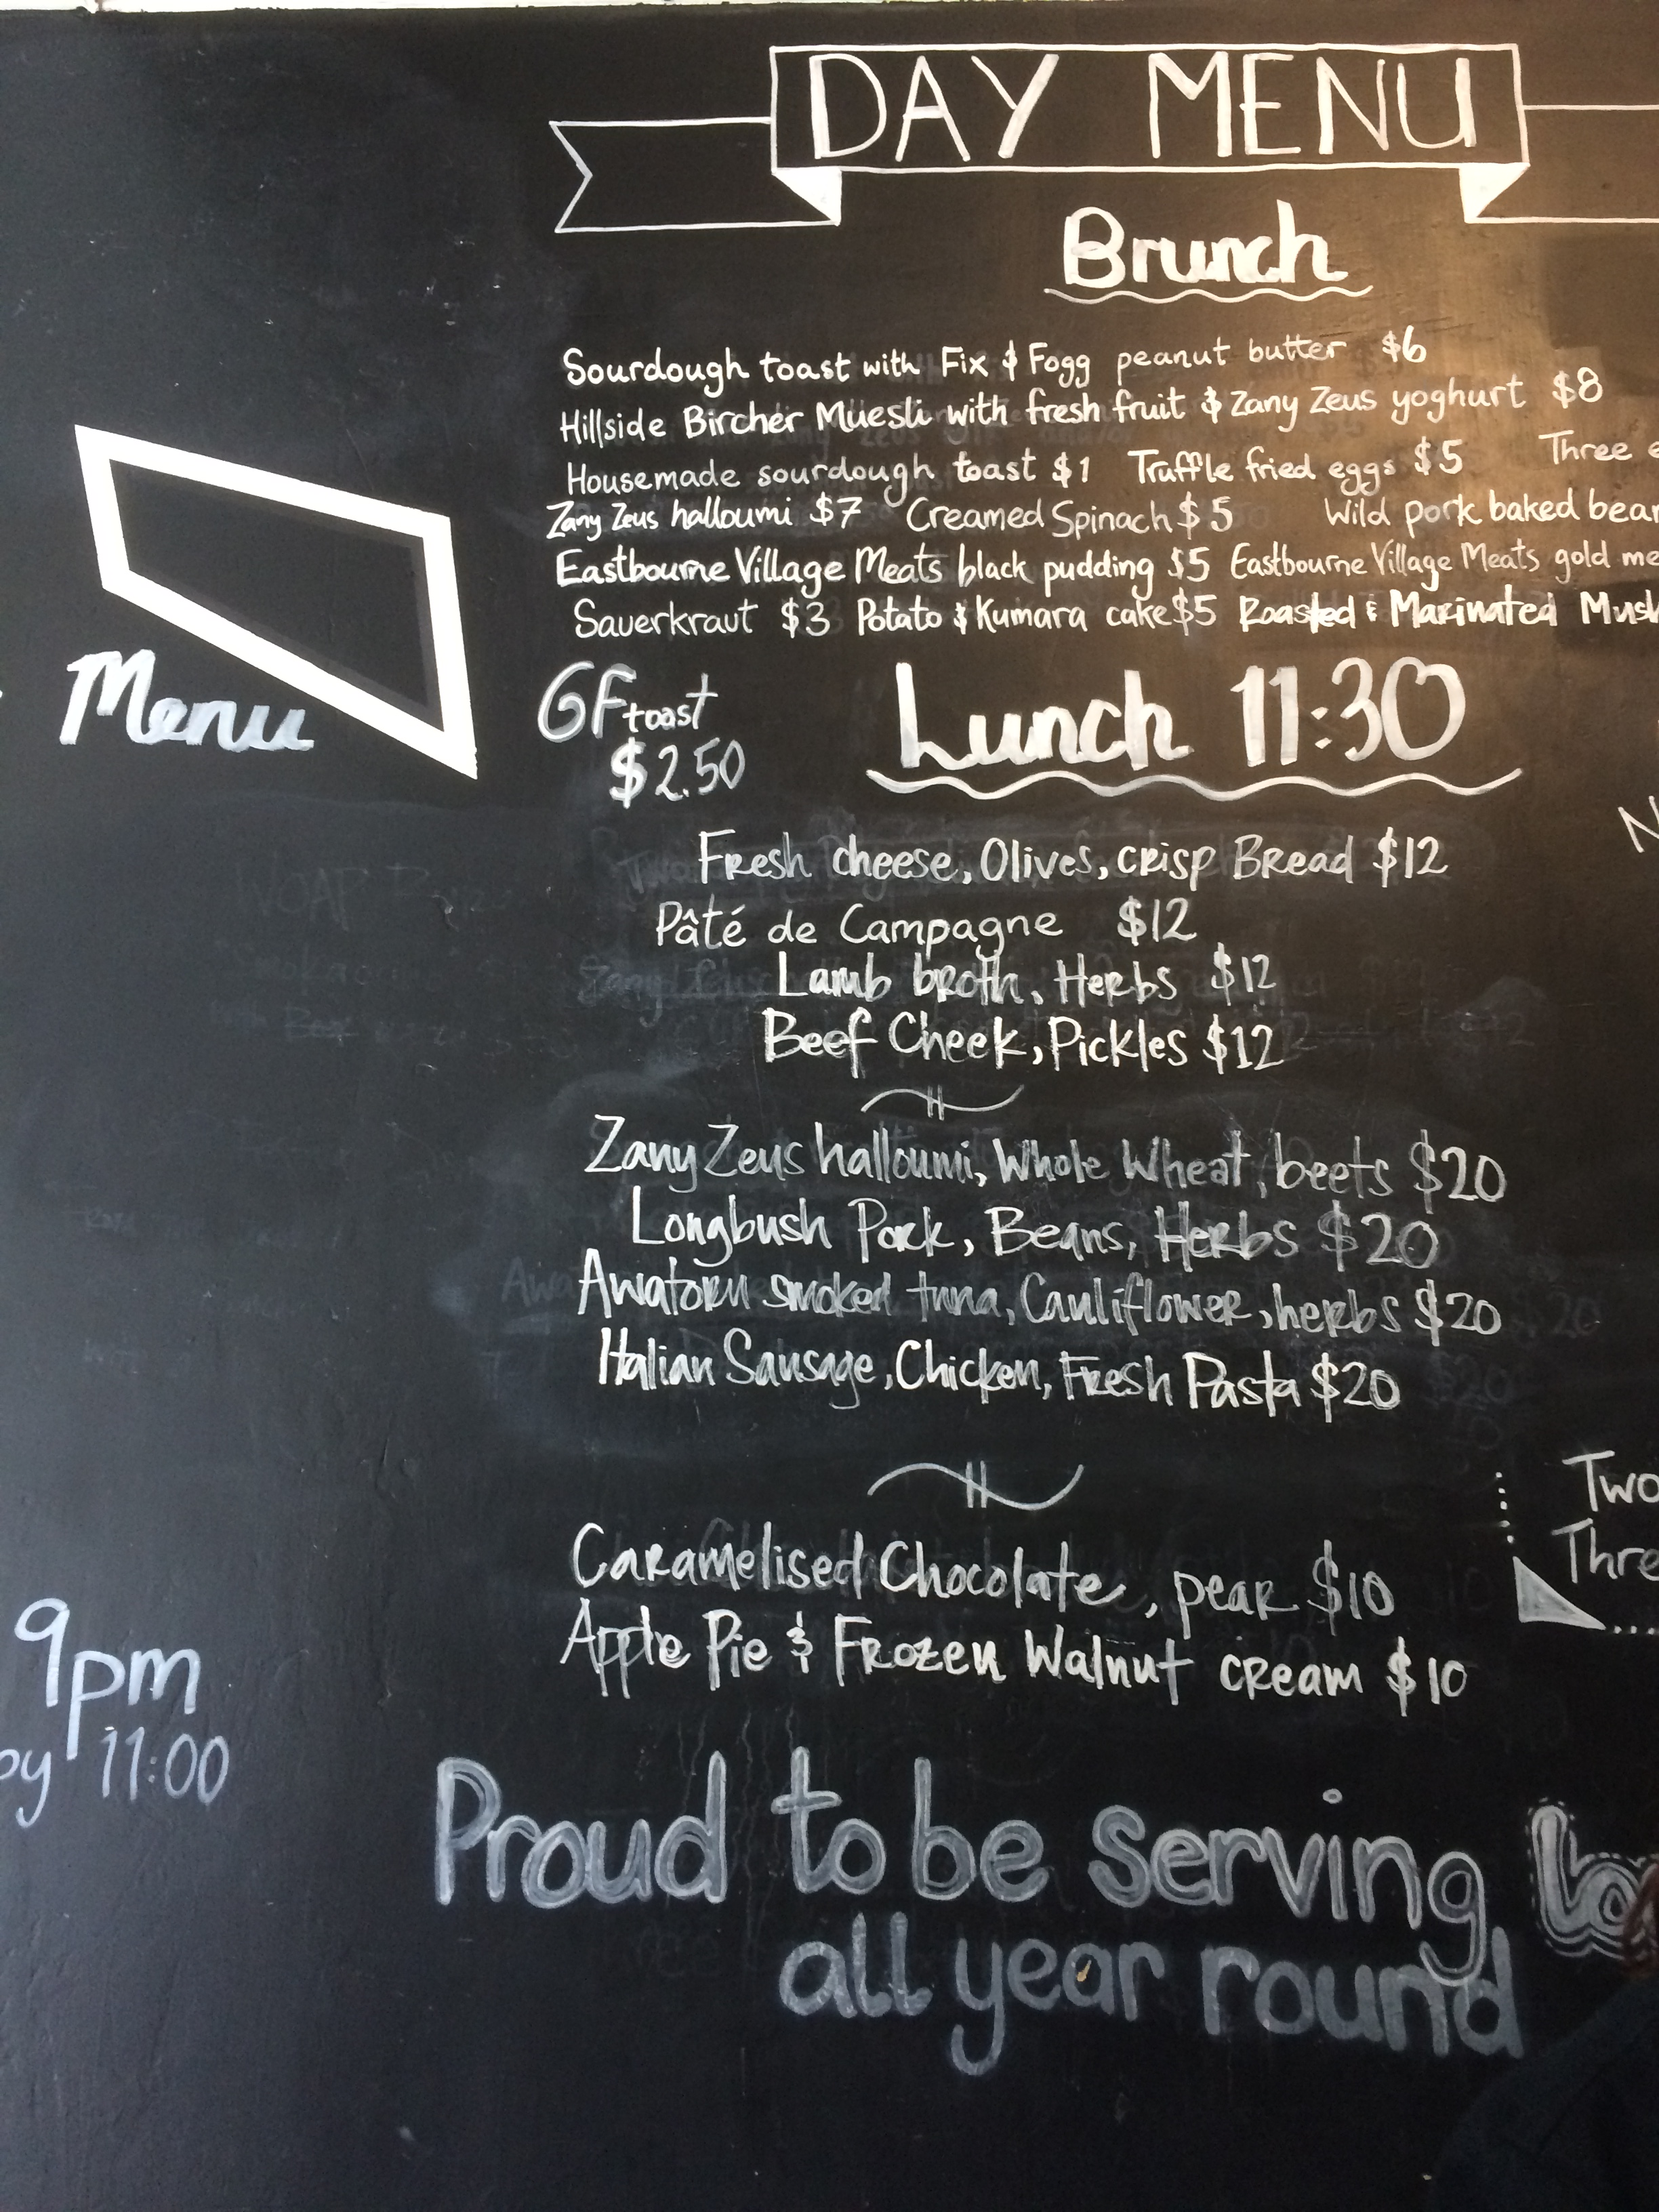 DAY MENU
Brunch
Sourdough toast with Fix & Fogg peanut butter $6
Hillside Bircher Muesli with fresh fruit & Zany Zeus yoghurt $8
Housemade sourdough toast $1 Truffle fried eggs $5 Three
Zany Zeus halloumi $7 Creamed Spinach $5 Wild pork baked
Eastbourne Village Meats black pudding $5 Eastbourne Village Meats gold
Sauerkraut $3 Potato & Kumara cake $5 Roasted & Marinated
Menu
GF toast
$2.50
Lunch 11:30
Fresh cheese, Olives, crisp Bread $12
Pâté de Campagne $12
Lamb broth, Herbs $12
Beef Cheek, Pickles $12
Zany Zeus halloumi, Whole Wheat, beets $20
Longbush Pork, Beans, Herbs $20
Awatoru smoked tuna, Cauliflower, herbs $20
Italian Sausage, Chicken, Fresh Pasta $20
Two
Caramelised Chocolate, pear $10
Apple Pie & Frozen Walnut cream $10
9pm
11:00
Proud to be serving
all year round